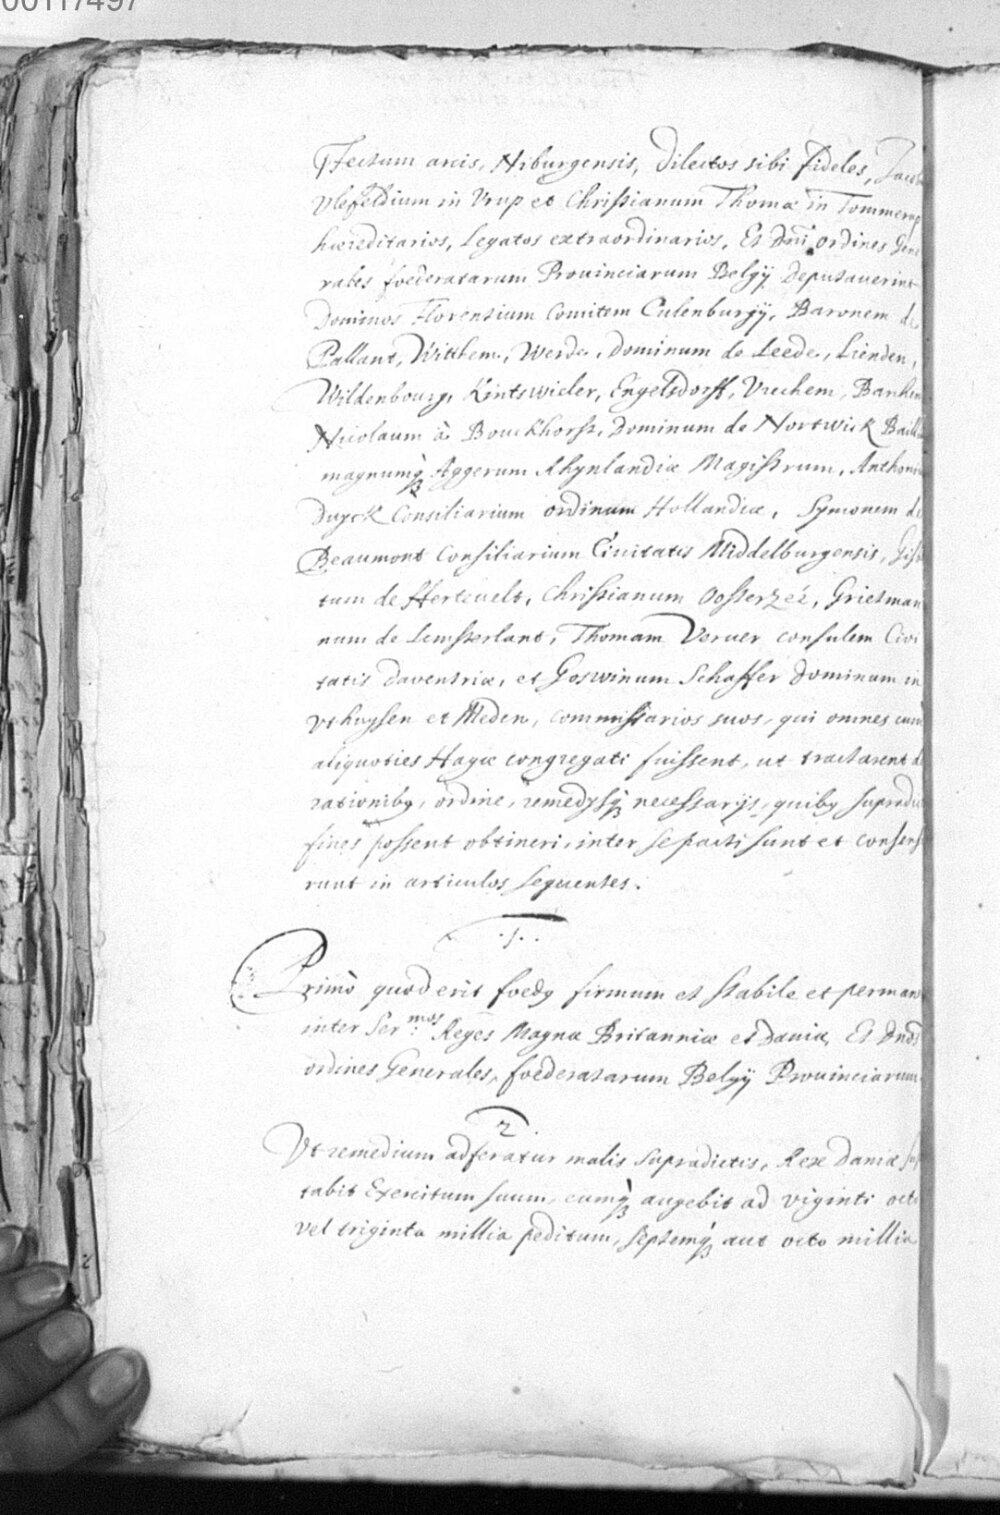 00117497
ffectum arcis, Niburgensis, Dilectos sibi fideles, Jacob
Vlefeldium in Vrup et Christianum Thomæ in Tommerup
hæreditarios, Legatos extraordinarios, Et Dnī ordines Gene
rales foederatarum Prouinciarum Belgÿ deputauerint
Dominos Florentium Comitem Culenburgÿ, Baronem de
Pallant, Witthem, Werde, Dominum de Leede, Lienden,
Wildenbourg, Kintswieler, Engelsdorff, Vrechem, Bachem
Nicolaum à Bouckhorst, Dominum de Nortwick Baili
magnumq̀ Aggerum Rhynlandiæ Magistrum, Anthoni
Duyck Consiliarium ordinum Hollandiæ, Symonem de
Beaumont Consiliarium Ciuitatis Middelburgensis, Gisb
tum de Hertevelt, Christianum Oosterzeé, Grietman
num de Lemsterlant, Thomam Veruer consulem Civi
tatis Daventriæ, et Goswinum Schaffer Dominum in
Vthuysen et Meden, commissarios suos, qui omnes cum
aliquoties Hagæ congregati fuissent, ut tractarent d
rationibꝫ, ordine, remedysq̀ necessarÿs, quibꝫ supradic
fines possent obtineri, inter se pacti sunt et consense
runt in articulos sequentes.
.1.
Primò quod erit foedꝫ firmum et stabile et perman
inter Ser:mos Reges Magnæ Britanniæ et Daniæ, Et Dnos
ordines Generales, foederatarum Belgÿ Prouinciarum
2.
Vt remedium adferatur malis supradictis, Rex Daniæ
tabit Exercitum suum, eumq̀ augebit ad viginti octo
vel triginta millia peditum, septemq̀ aut octo millia